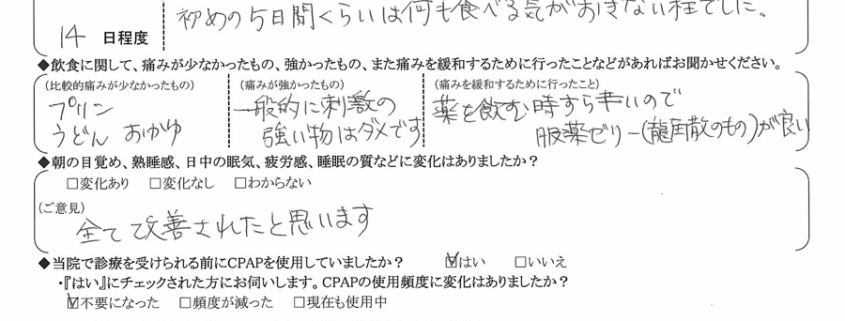 初めの5日間くらいは何も食べる気がおきない程でした。
14 日程度
◆飲食に関して、痛みが少なかったもの、強かったもの、また痛みを緩和するために行ったことなどがあればお聞かせください。
(比較的痛みが少なかったもの) (痛みが強かったもの) (痛みを緩和するために行ったこと)
プリン 一般的に刺激の 薬を飲む時すら辛いので
うどん おかゆ 強い物はダメです 服薬ゼリー(龍角散のもの)が良い
◆朝の目覚め、熟睡感、日中の眠気、疲労感、睡眠の質などに変化はありましたか?
□変化あり □変化なし □わからない
(ご意見)
全て改善されたと思います
◆当院で診療を受けられる前にCPAPを使用していましたか? ☑はい □いいえ
・『はい』にチェックされた方にお伺いします。CPAPの使用頻度に変化はありましたか?
☑不要になった □頻度が減った □現在も使用中